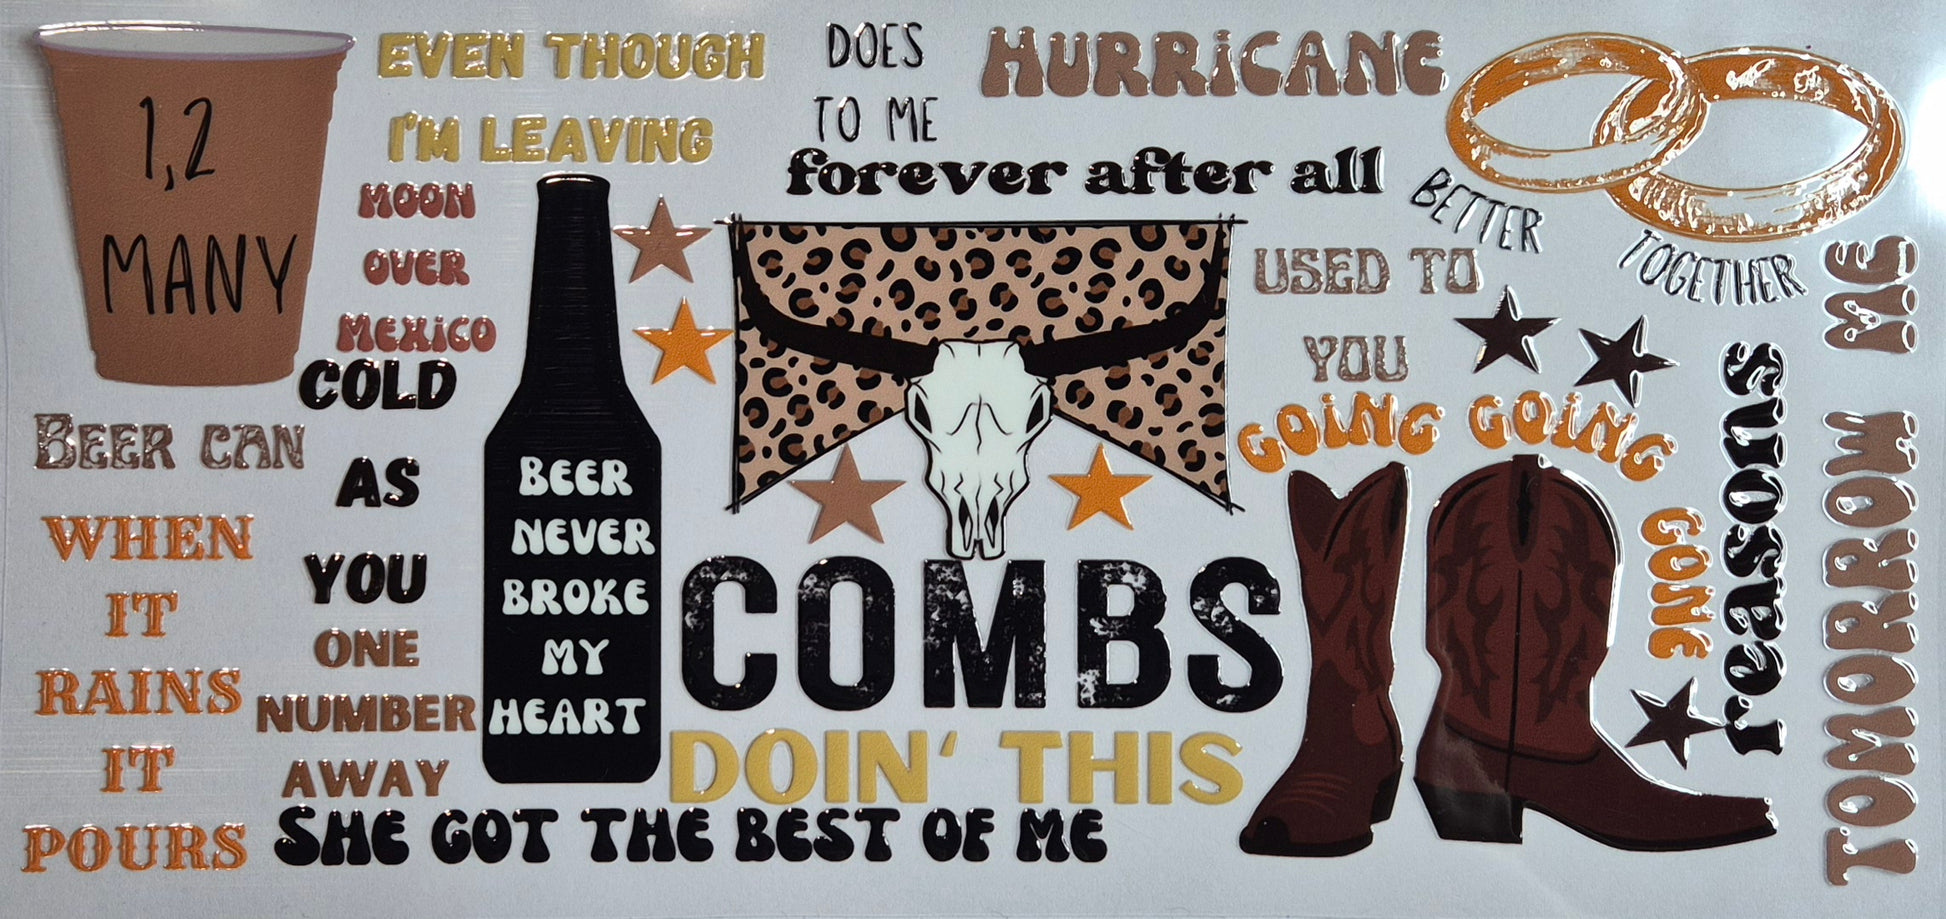 1,2
MANY
EVEN THOUGH
I'M LEAVING
DOES
TO ME
HURRICANE
forever after all
BETTER
TOGETHER
MOON
OVER
MEXICO
COLD
AS
YOU
BEER CAN
WHEN
IT
RAINS
IT
POURS
ONE
NUMBER
AWAY
BEER
NEVER
BROKE
MY
HEART
COMBS
DOIN' THIS
SHE GOT THE BEST OF ME
USED TO
YOU
GOING GOING
GONE
reasons
TOMORROW ME